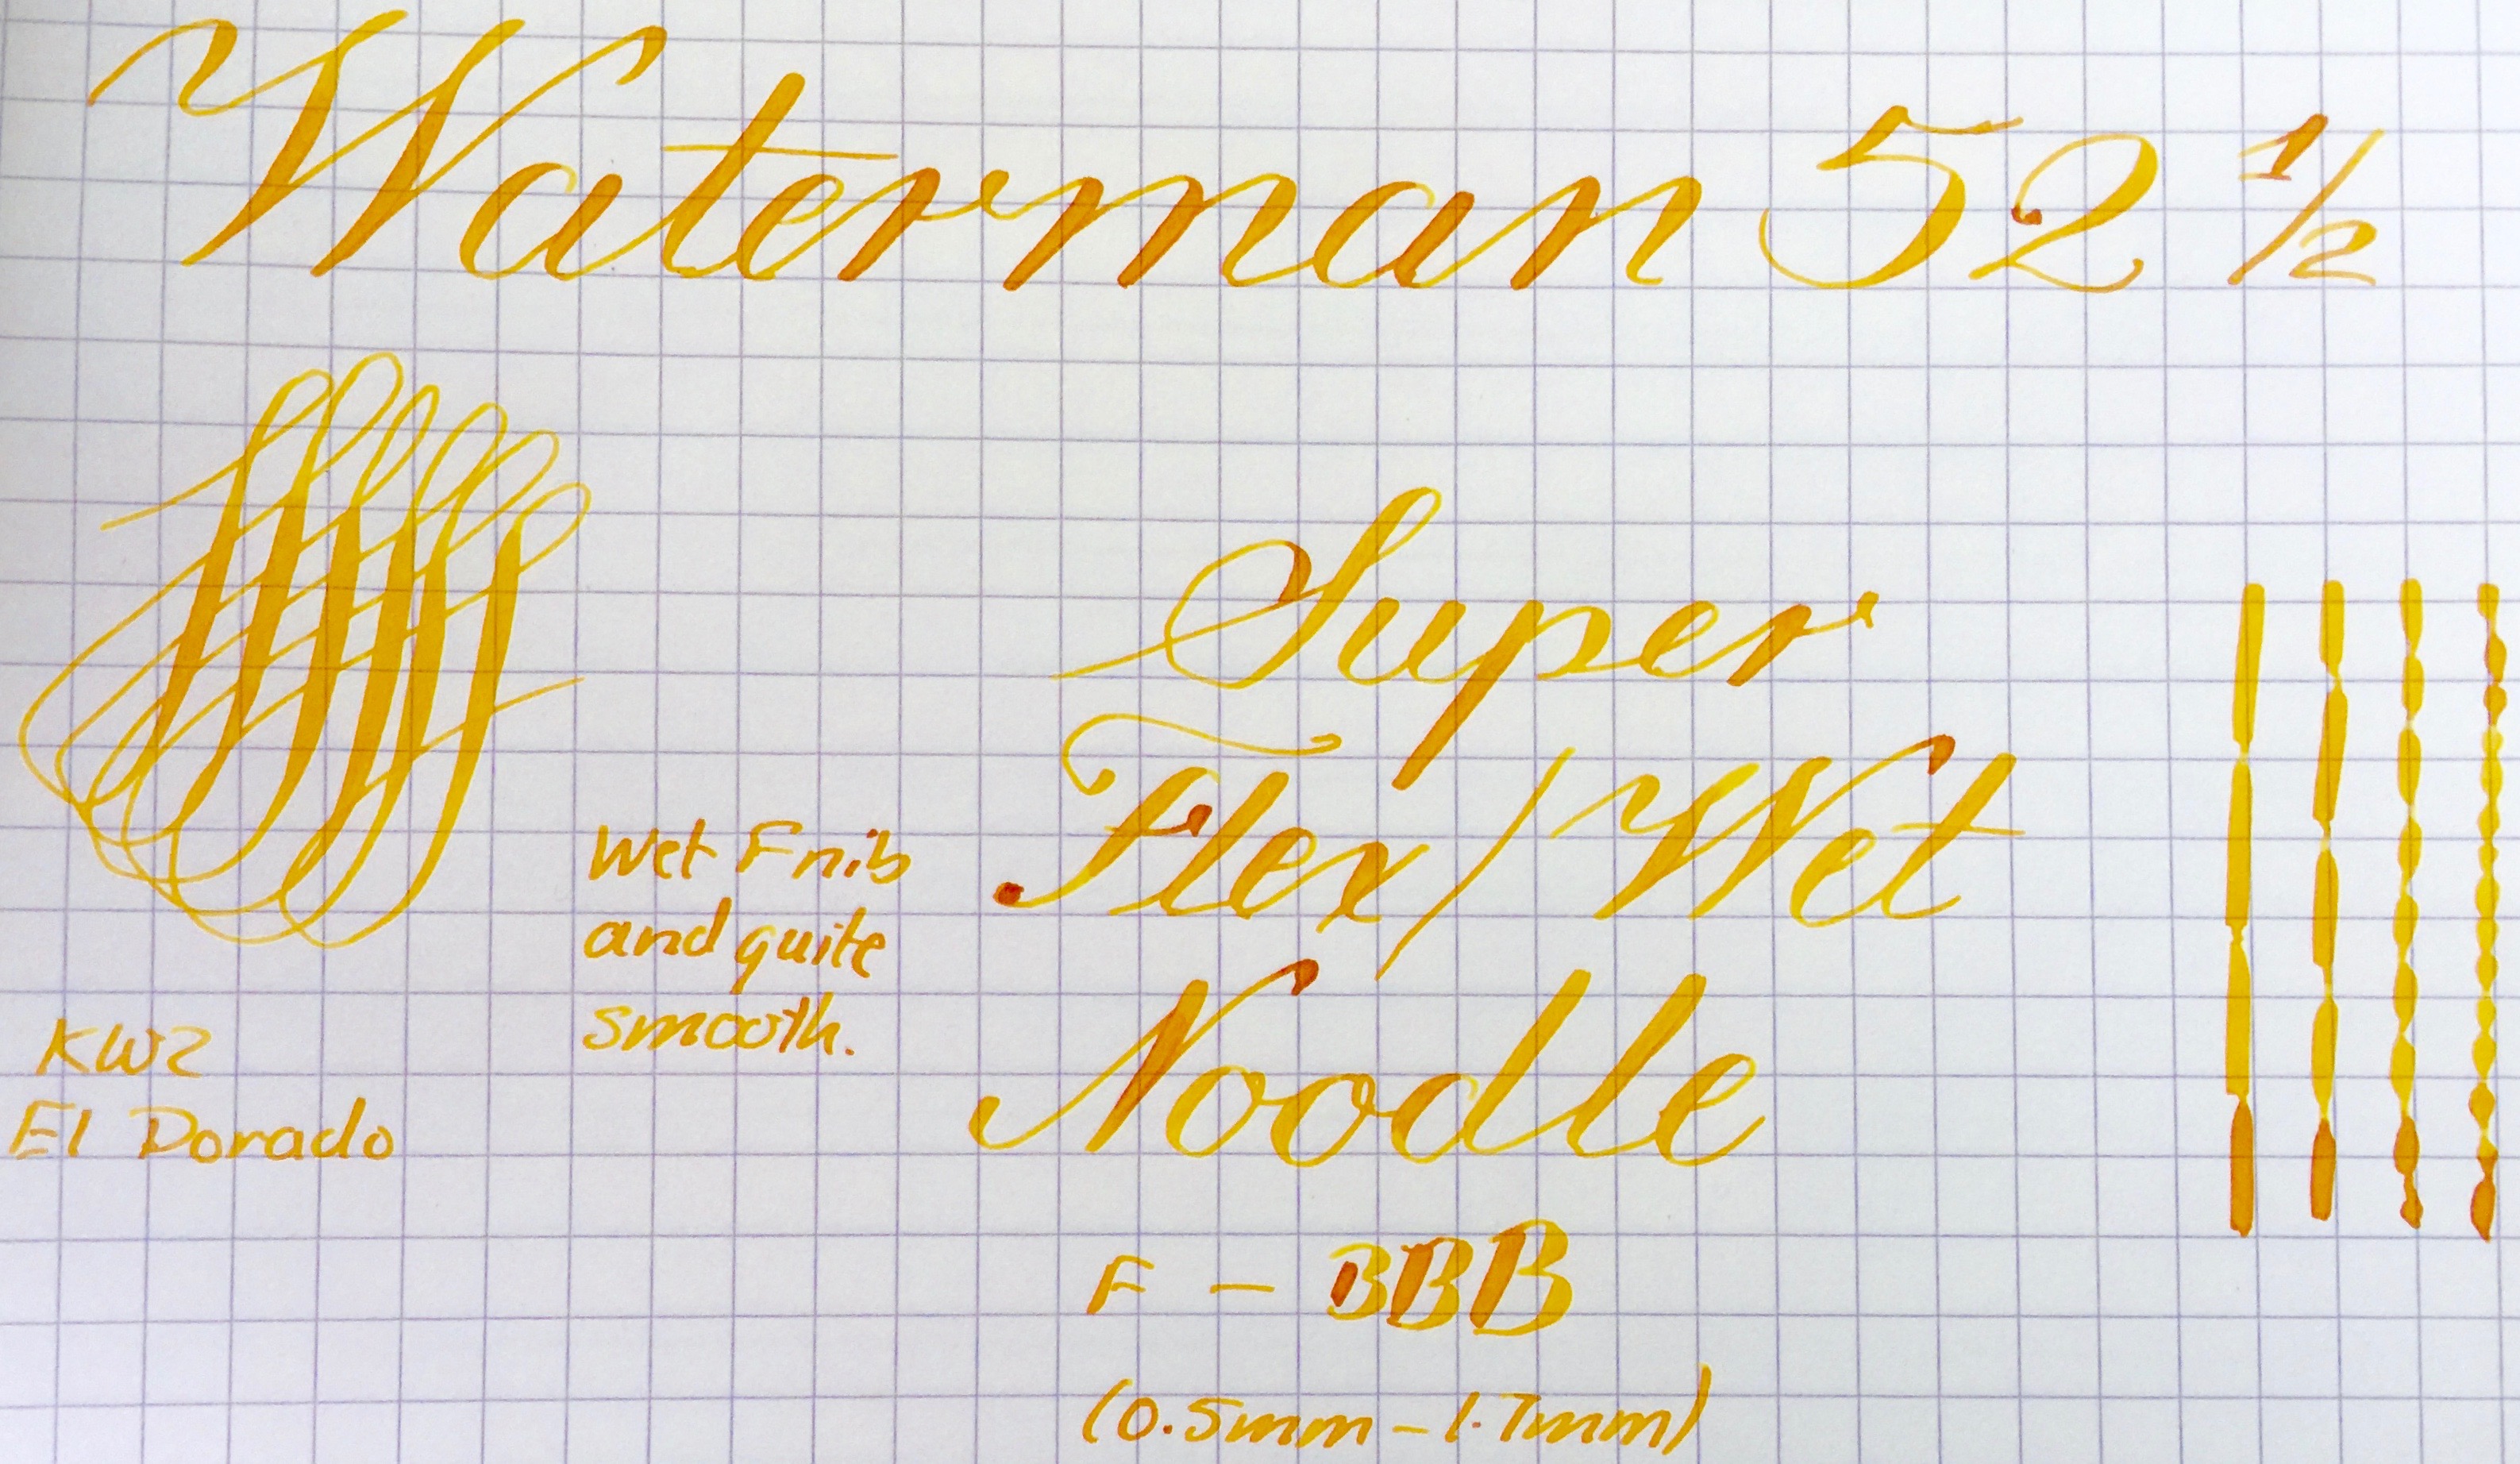 Waterman 52 1/2
Super
Flex/Wet
Noodle
Wet F nib
and quite
smooth.
KWZ
El Dorado
F – BBB
(0.5mm – 1.7mm)